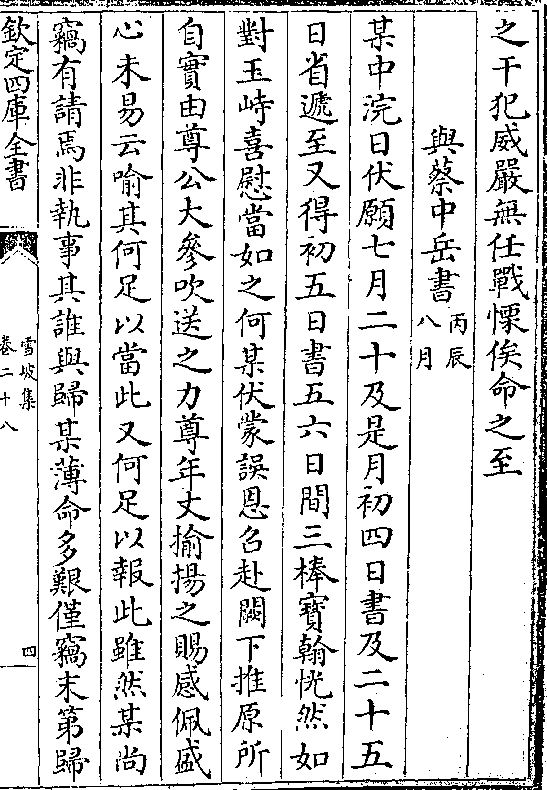 之干犯威嚴無任戰慄俟命之至
與蔡中岳書丙辰八月
某中浣日伏願七月二十及是月初四日書及二十五
日省遞至又得初五日書五六日間三捧寳翰恍然如
對玉峙喜慰當如之何某伏蒙誤恩召赴闕下推原所
自實由尊公大參吹送之力尊年丈揄揚之賜感佩盛
心未易云喻其何足以當此又何足以報此雖然某尚
竊有請焉非執事其誰與歸某薄命多艱僅竊末第歸
欽定四庫全書
雪坡集
卷二十八
四